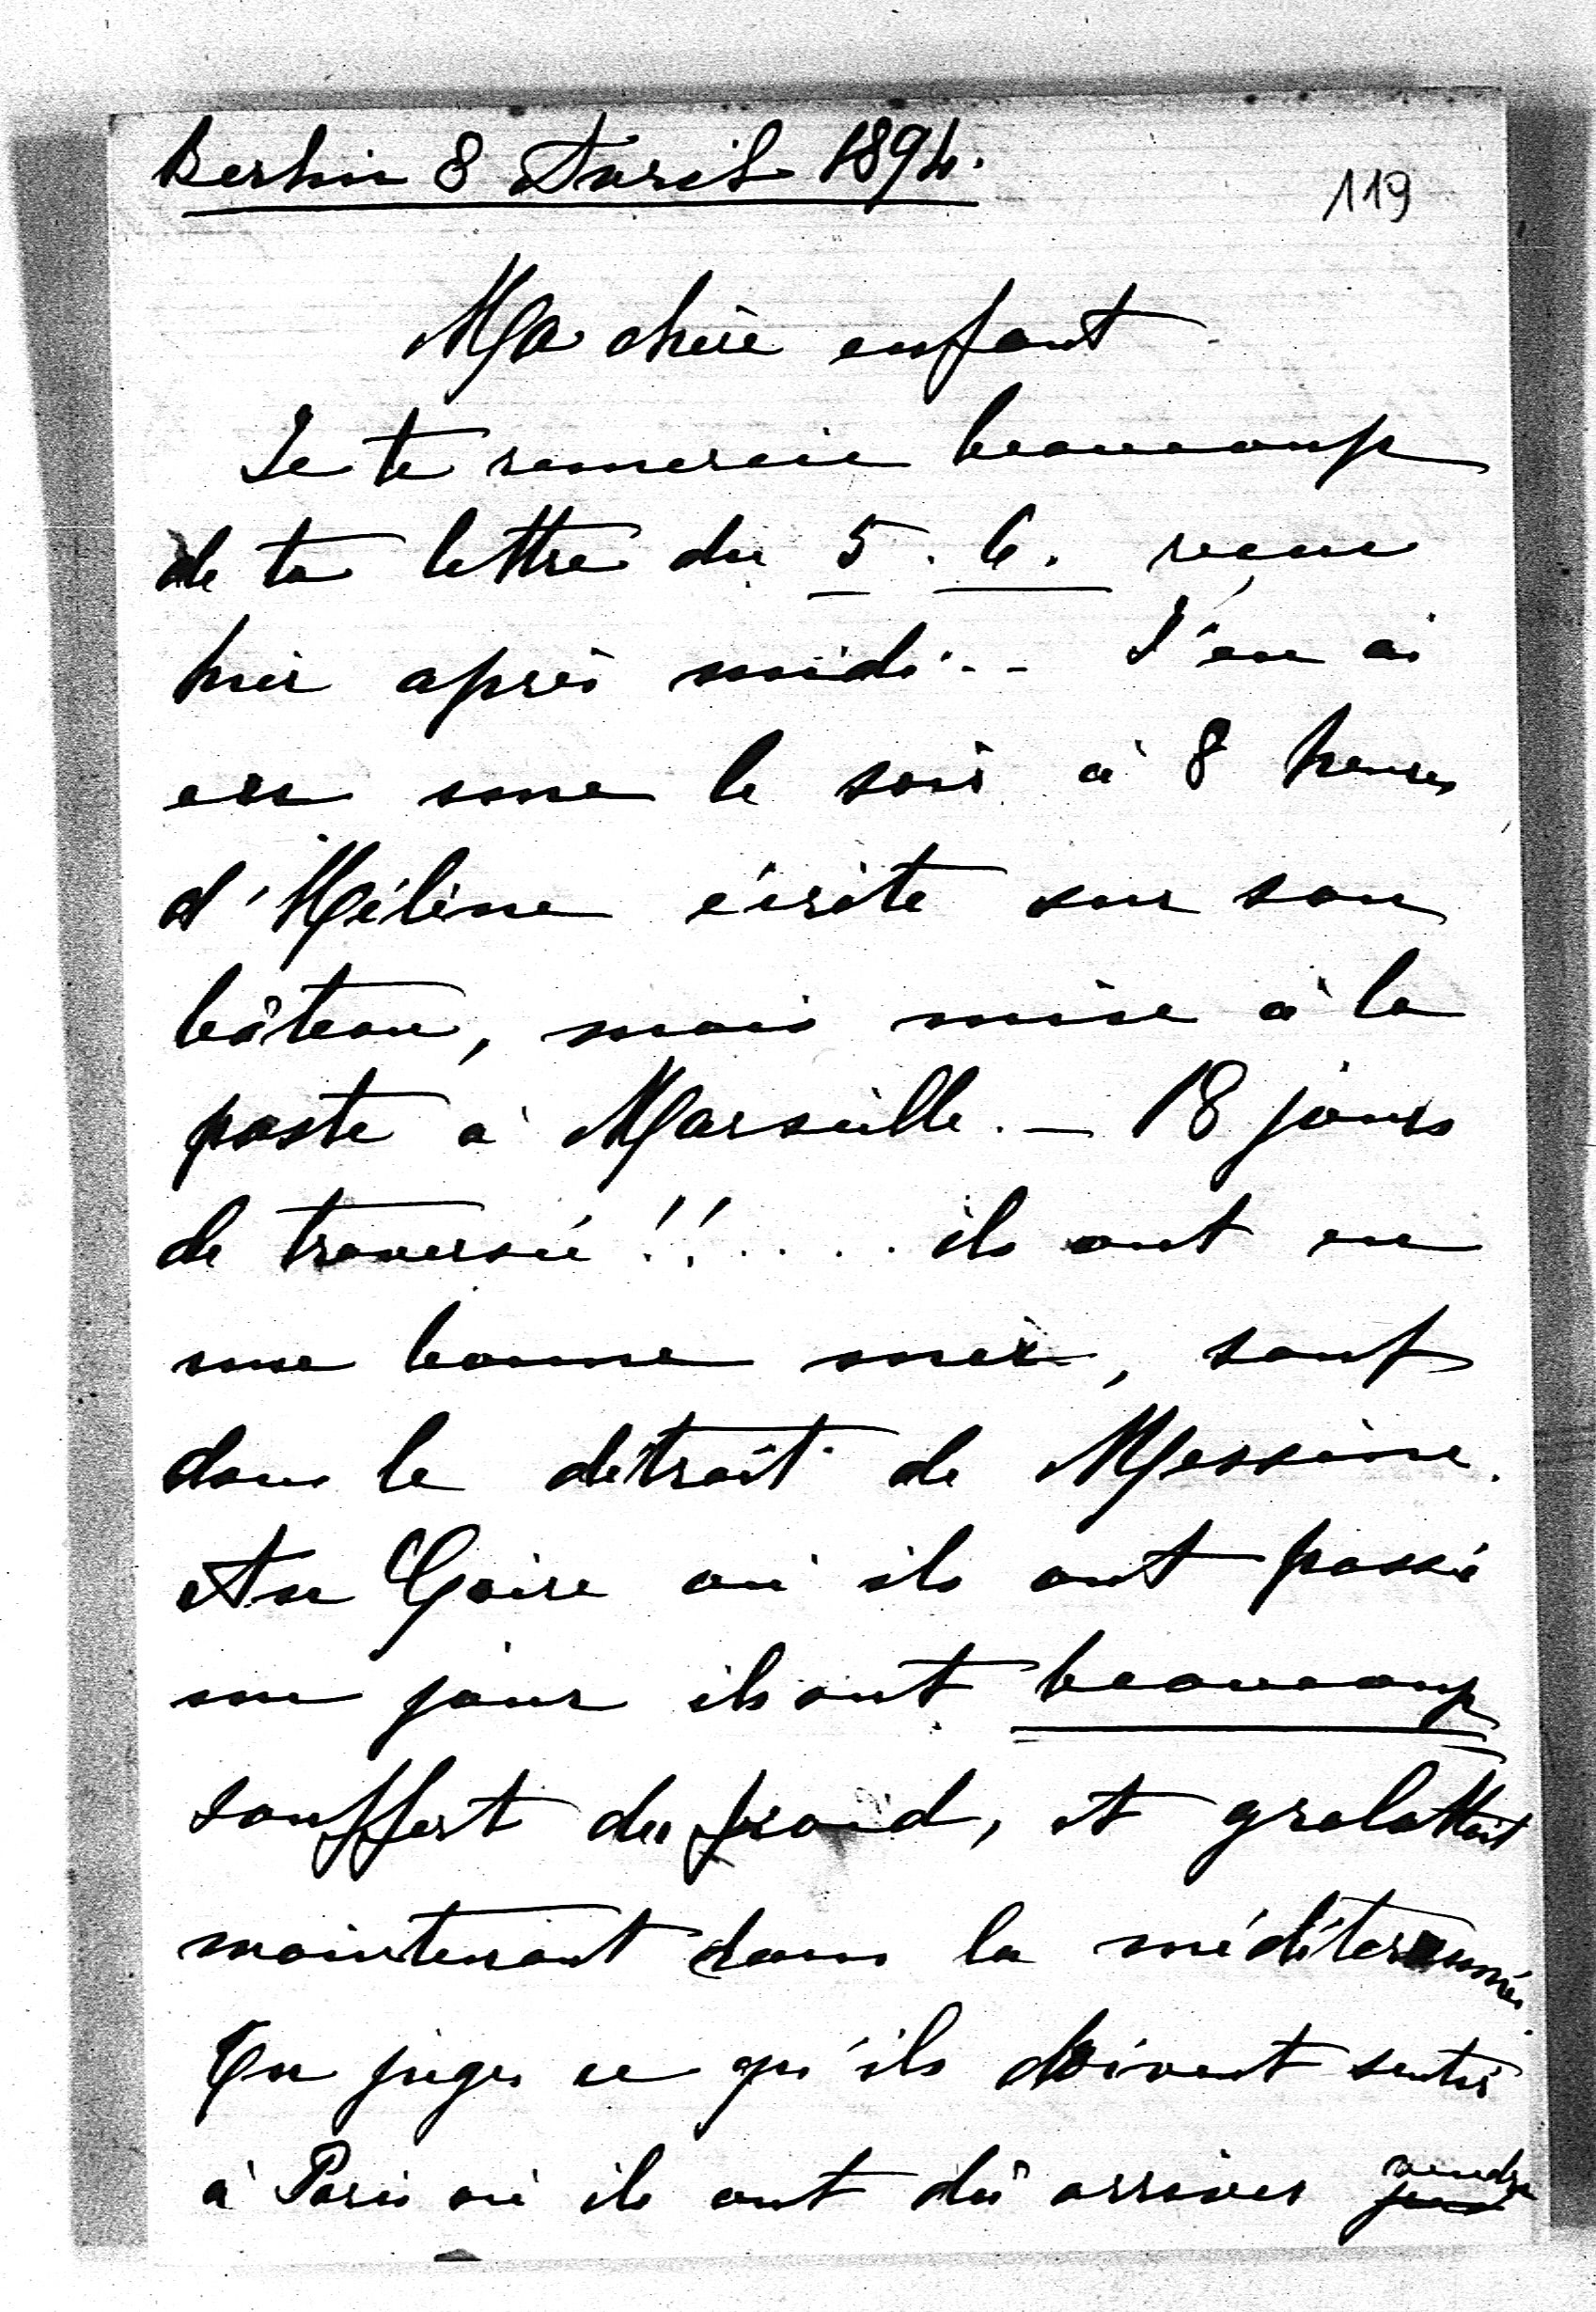 Berlin 8 Avril 1894.
119
Ma chère enfant
Je te remercie beaucoup
de ta lettre du 5. 6. reçue
hier après midi.. J'en ai
eu une le soir à 8 heures
d'Hélène écrite sur son
bâteau, mais mise à la
poste à Marseille. — 18 jours
de traversée !!.... ils ont eu
une bonne mer, sauf
dans le détroit de Messine.
Au Caire où ils ont passé
un jour ils ont beaucoup
souffert du froid, et grelottait
maintenant dans la méditerannée.
Tu juges ce qu'ils doivent sentir
à Paris où ils ont dû arriver vendre